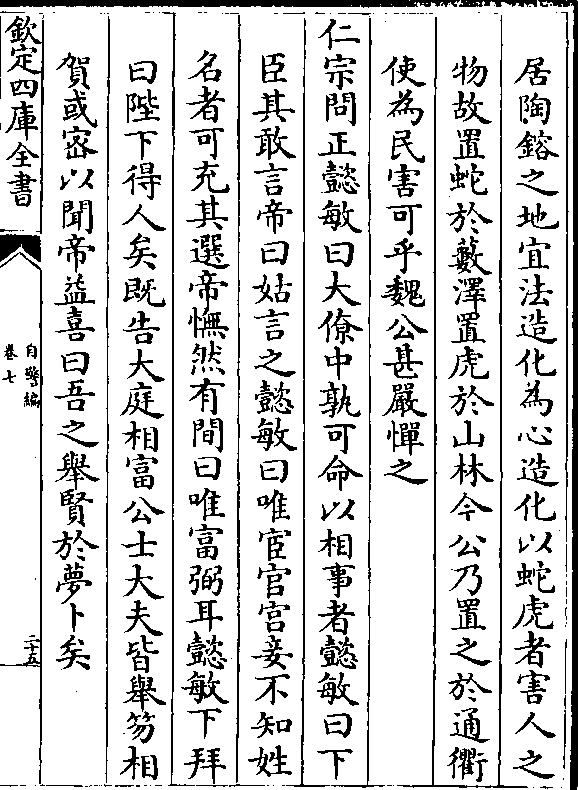 居陶鎔之地宜法造化為心造化以蛇虎者害人之
物故置蛇於藪澤置虎於山林今公乃置之於通衢
使為民害可乎魏公甚嚴憚之
仁宗問王懿敏曰大僚中孰可命以相事者懿敏曰下
臣其敢言帝曰姑言之懿敏曰唯宦官宫妾不知姓
名者可充其選帝憮然有間曰唯富弼耳懿敏下拜
曰陛下得人矣既告大庭相富公士大夫皆舉笏相
賀或宻以聞帝益喜曰吾之舉賢於夢卜矣
欽定四庫全書
自警編
卷七
三十五